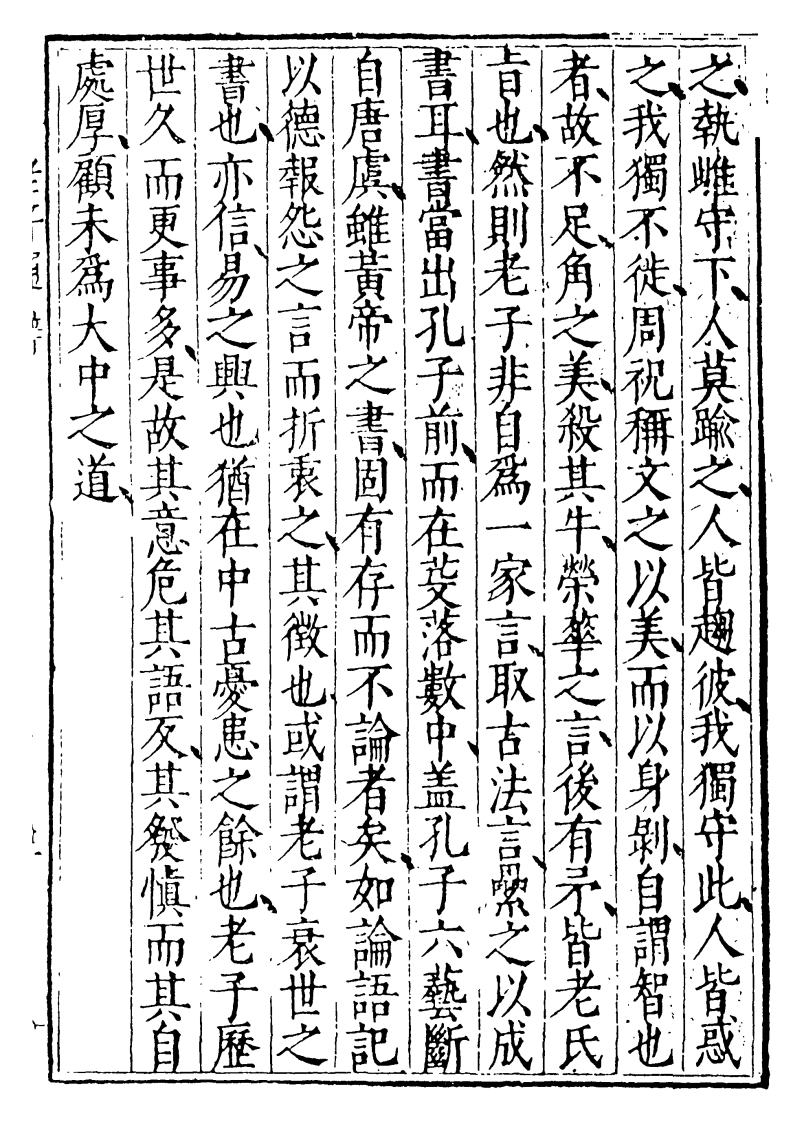 之執雌守下人莫踰之人皆趨彼我獨守此人皆惑
之我獨不徙周祝稱文之以美而以身剝自謂智也
者故不足角之美殺其牛榮華之言後有矛皆老氏
旨也然則老子非自爲一家言取古法言纍之以成
書耳書當出孔子前而在芟落數中盖孔子六藝斷
自唐虞雖黃帝之書固有存而不論者矣如論語記
以德報怨之言而折衷之其徵也或謂老子衰世之
書也亦信易之興也猶在中古憂患之餘也老子歷
世久而更事多是故其意危其語反其發慎而其自
處厚顧未爲大中之道